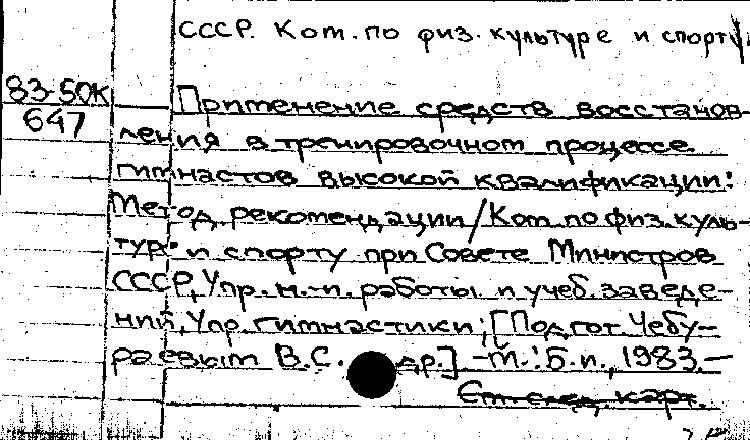 СССР. Ком. по физ. культуре и спорту.
83-50К
647
Применение средств восстанов-
ления в тренировочном процессе
гимнастов высокой квалификации:
Метод. рекомендации / Ком. по физ. куль-
туре и спорту при Совете Министров
СССР, Упр. н.-и. работы и учеб. заведе-
ний, Упр. гимнастики; [Подгот. Чебу-
раевым В.С. др.] - М.: Б.и., 1983. -
См. след. карт.